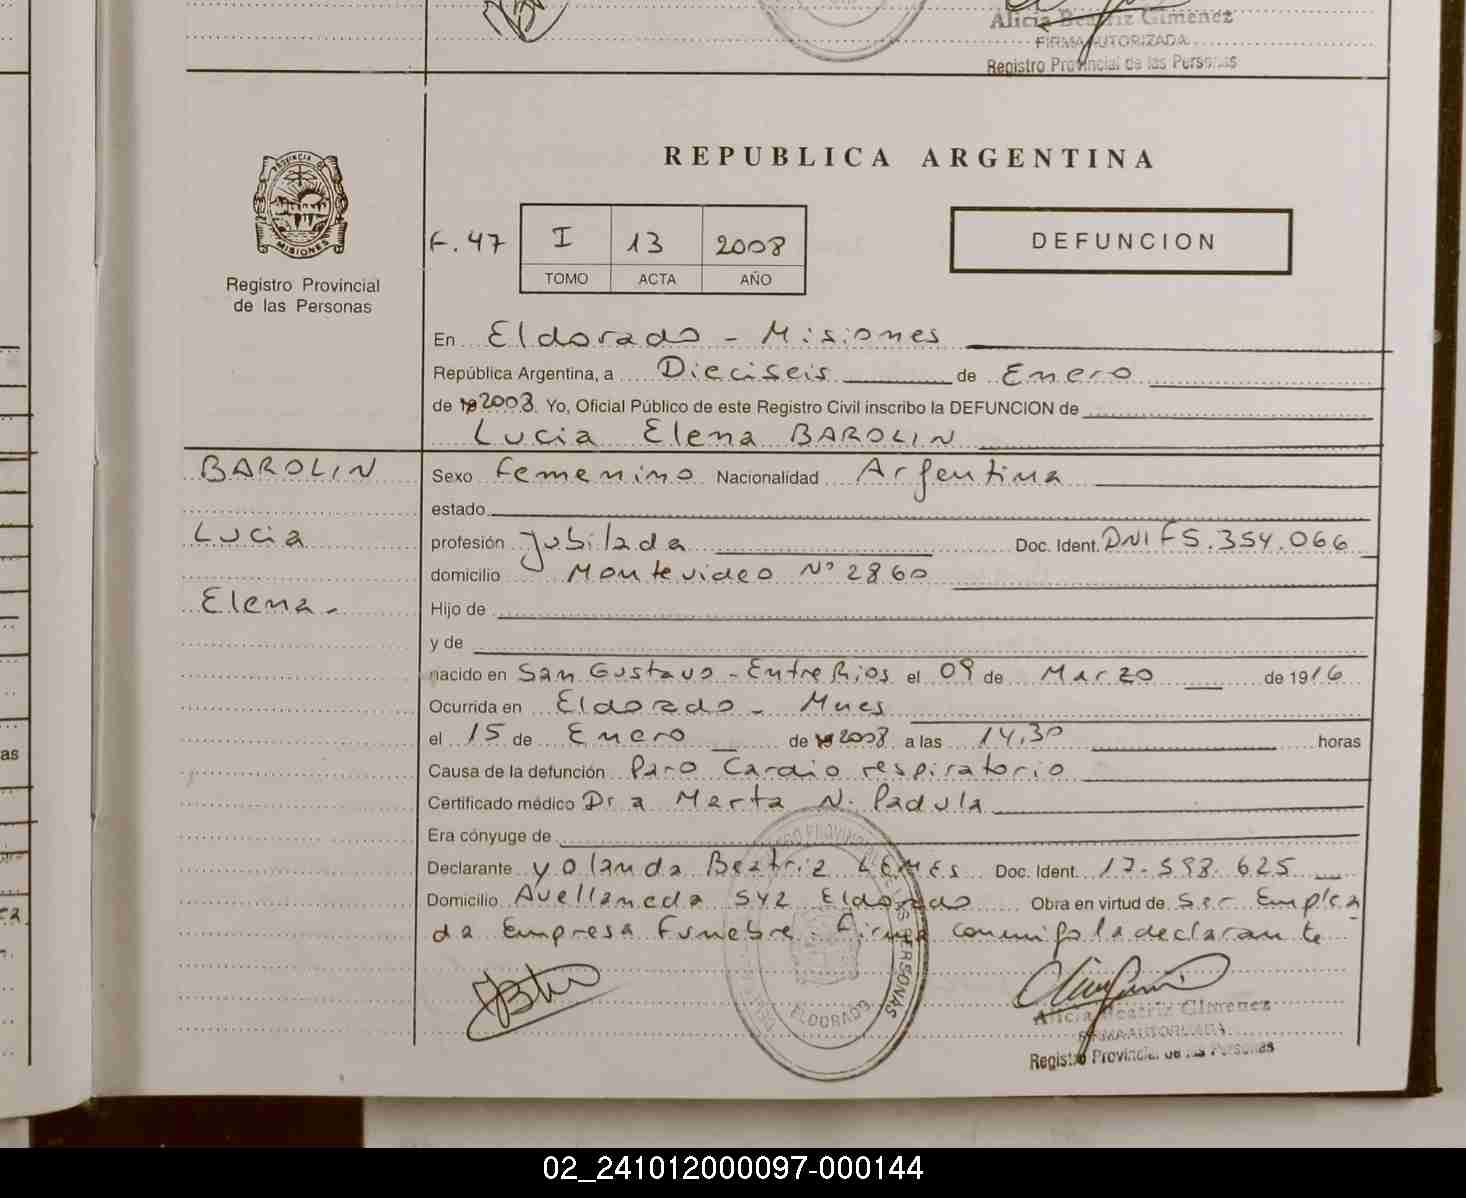 Alicia Beatriz Gimenez
FIRMA AUTORIZADA
Registro Provincial de las Personas
REPUBLICA ARGENTINA
PROVINCIA DE
MISIONES
Registro Provincial
de las Personas
F. 47 I 13 2008
TOMO ACTA AÑO
DEFUNCION
En Eldorado - Misiones
República Argentina, a Dieciseis de Enero
de 2008. Yo, Oficial Público de este Registro Civil inscribo la DEFUNCION de
Lucia Elena BAROLIN
BAROLIN
Lucia
Elena.-
Sexo Femenino Nacionalidad Argentina
estado
profesión Jubilada Doc. Ident. DNI F5.354.066
domicilio Montevideo Nº 2860
Hijo de
y de
nacido en San Gustavo - Entre Rios el 09 de Marzo de 1916
Ocurrida en Eldorado - Mnes
el 15 de Enero de 2008 a las 14,30 horas
Causa de la defunción Paro Cardio respiratorio
Certificado médico Dra Marta N. Padula
Era cónyuge de
Declarante Yolanda Beatriz LEMES Doc. Ident. 17.598.625
Domicilio Avellaneda 542 Eldorado Obra en virtud de Ser Emplea
da Empresa Funebre. Firma conmigo la declarante
ELDORADO
Alicia Beatriz Gimenez
FIRMA AUTORIZADA
Registro Provincial de las Personas
02_241012000097-000144